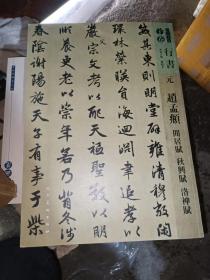 行書
元 趙孟頫
閒居賦 秋興賦 洛神賦
其東則明堂辟雍清穆敞閑
環林縈暎海迴淵聿追孝以
嚴父宗文考以配天祗聖敬以明
順養更老以崇年若乃背冬涉
春陰謝陽施天子有事于柴